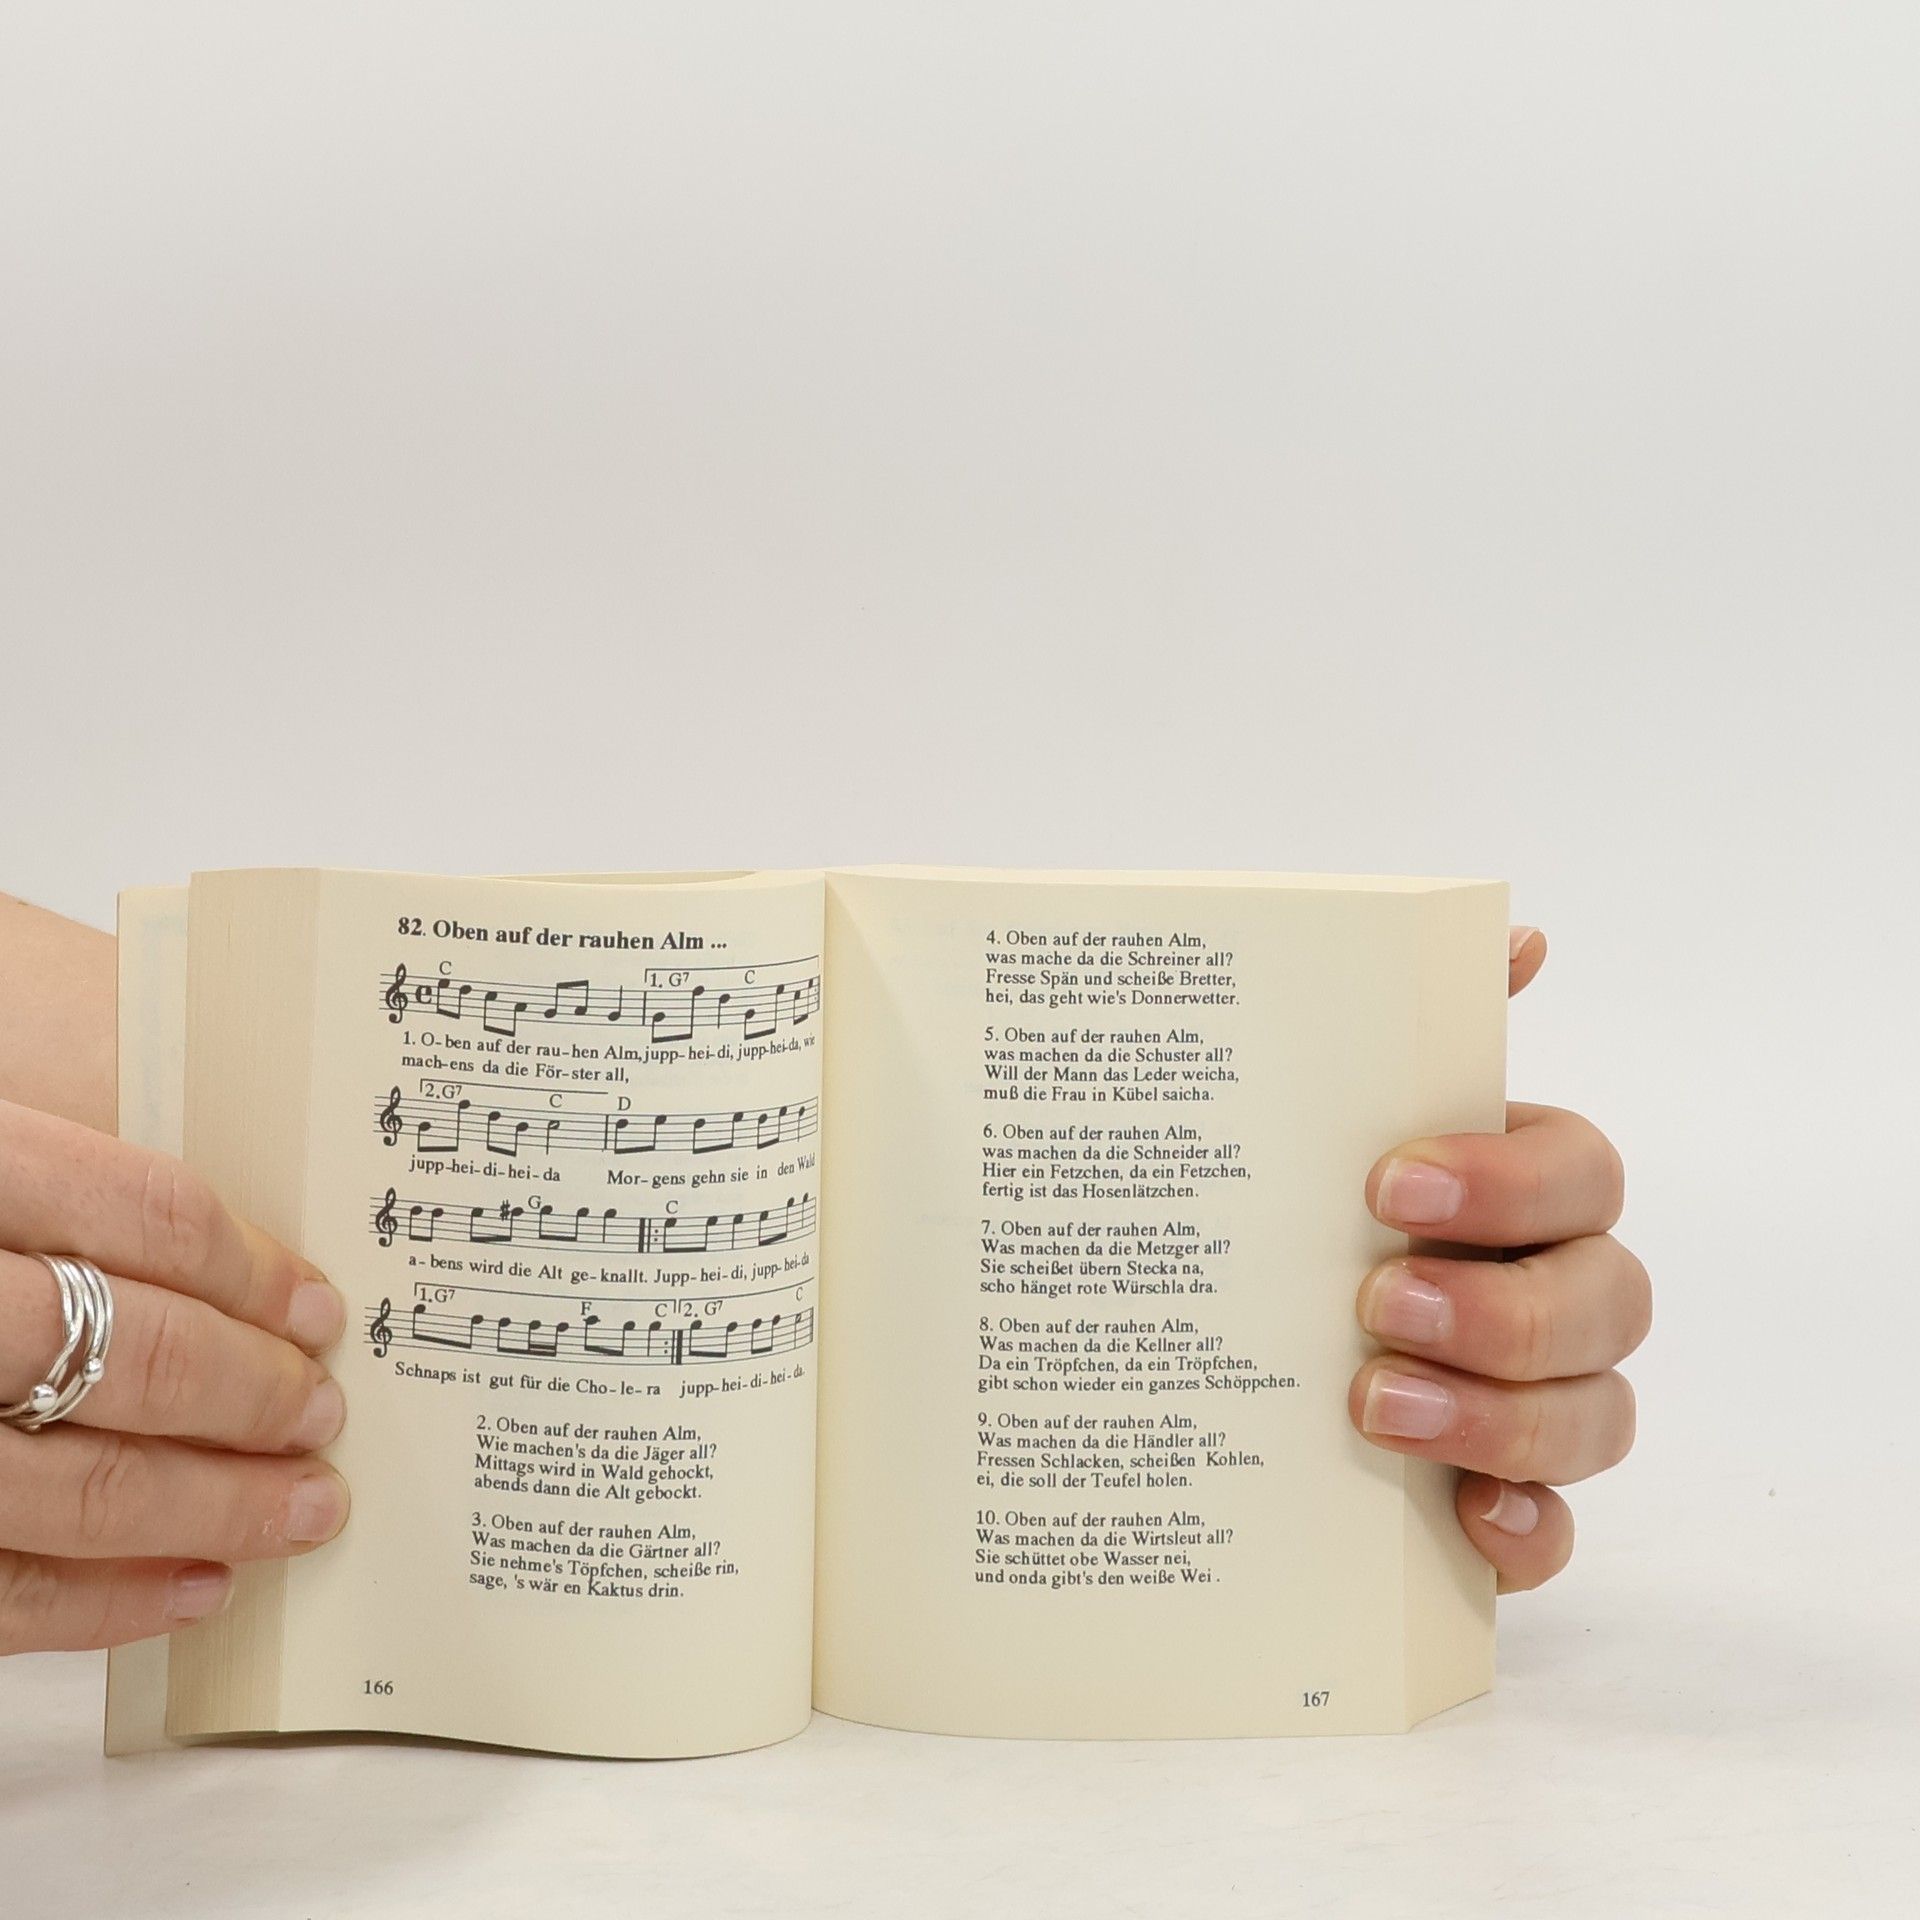 82. Oben auf der rauhen Alm ...
C 1. G7 C
1. O-ben auf der rau-hen Alm, jupp-hei-di, jupp-hei-da, wie
mach-ens da die För-ster all,
2. G7 C D
jupp-hei-di-hei-da Mor-gens gehn sie in den Wald
G C
a-bens wird die Alt ge-knallt. Jupp-hei-di, jupp-hei-da
1. G7 F C 2. G7 C
Schnaps ist gut für die Cho-le-ra jupp-hei-di-hei-da.
2. Oben auf der rauhen Alm,
Wie machen's da die Jäger all?
Mittags wird in Wald gehockt,
abends dann die Alt gebockt.
3. Oben auf der rauhen Alm,
Was machen da die Gärtner all?
Sie nehme's Töpfchen, scheiße rin,
sage, 's wär en Kaktus drin.
166
4. Oben auf der rauhen Alm,
was mache da die Schreiner all?
Fresse Spän und scheiße Bretter,
hei, das geht wie's Donnerwetter.
5. Oben auf der rauhen Alm,
was machen da die Schuster all?
Will der Mann das Leder weicha,
muß die Frau in Kübel saicha.
6. Oben auf der rauhen Alm,
was machen da die Schneider all?
Hier ein Fetzchen, da ein Fetzchen,
fertig ist das Hosenlätzchen.
7. Oben auf der rauhen Alm,
Was machen da die Metzger all?
Sie scheißet übern Stecka na,
scho hänget rote Würschla dra.
8. Oben auf der rauhen Alm,
Was machen da die Kellner all?
Da ein Tröpfchen, da ein Tröpfchen,
gibt schon wieder ein ganzes Schöppchen.
9. Oben auf der rauhen Alm,
Was machen da die Händler all?
Fressen Schlacken, scheißen Kohlen,
ei, die soll der Teufel holen.
10. Oben auf der rauhen Alm,
Was machen da die Wirtsleut all?
Sie schüttet obe Wasser nei,
und onda gibt's den weiße Wei .
167